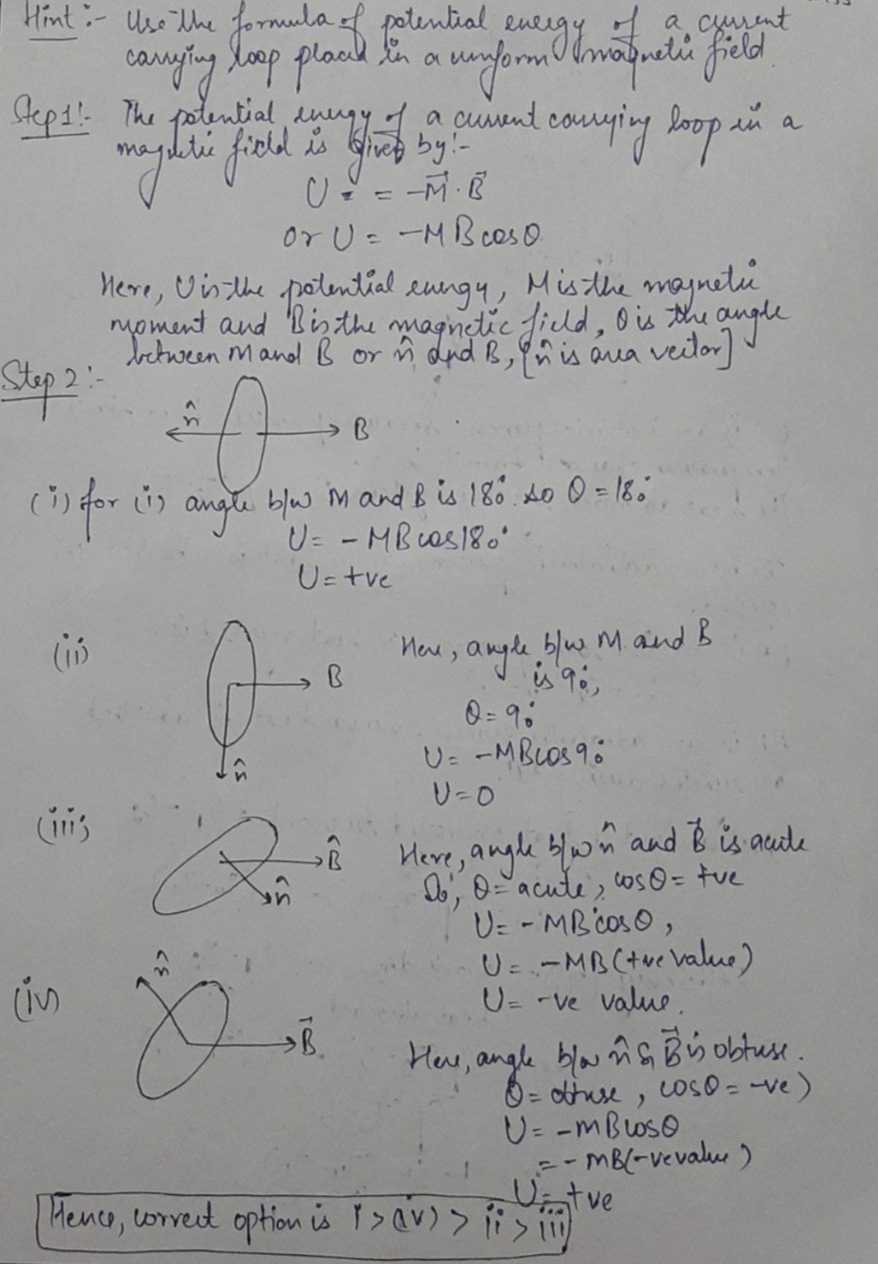 Hint :- Use the formula of potential energy of a current
carrying loop placed in a uniform magnetic field.
Step 1:- The potential energy of a current carrying loop in a
magnetic field is given by:-
U = = -M⃗ · B⃗
or U = -MB cosθ
Here, U is the potential energy, M is the magnetic
moment and B is the magnetic field, θ is the angle
between M and B or n̂ and B, [n̂ is area vector]
Step 2 :-
n̂ B
(i) for (i) angle b/w M and B is 180° so θ = 180°
U = - MB cos180°
U = +ve
(ii) B Here, angle b/w M and B
is 90°,
θ = 90°
U = -MB cos90°
n̂
U = 0
(iii) B̂ Here, angle b/w n̂ and B⃗ is acute
n̂ So, θ = acute, cosθ = +ve
U = - MB cosθ,
n̂ U = -MB (+ve value)
(iv) U = -ve value.
B⃗ Here, angle b/w n̂ & B⃗ is obtuse.
θ = obtuse, cosθ = -ve)
U = -MB cosθ
= - MB(-ve value)
U = +ve
Hence, correct option is i > (iv) > ii > iii